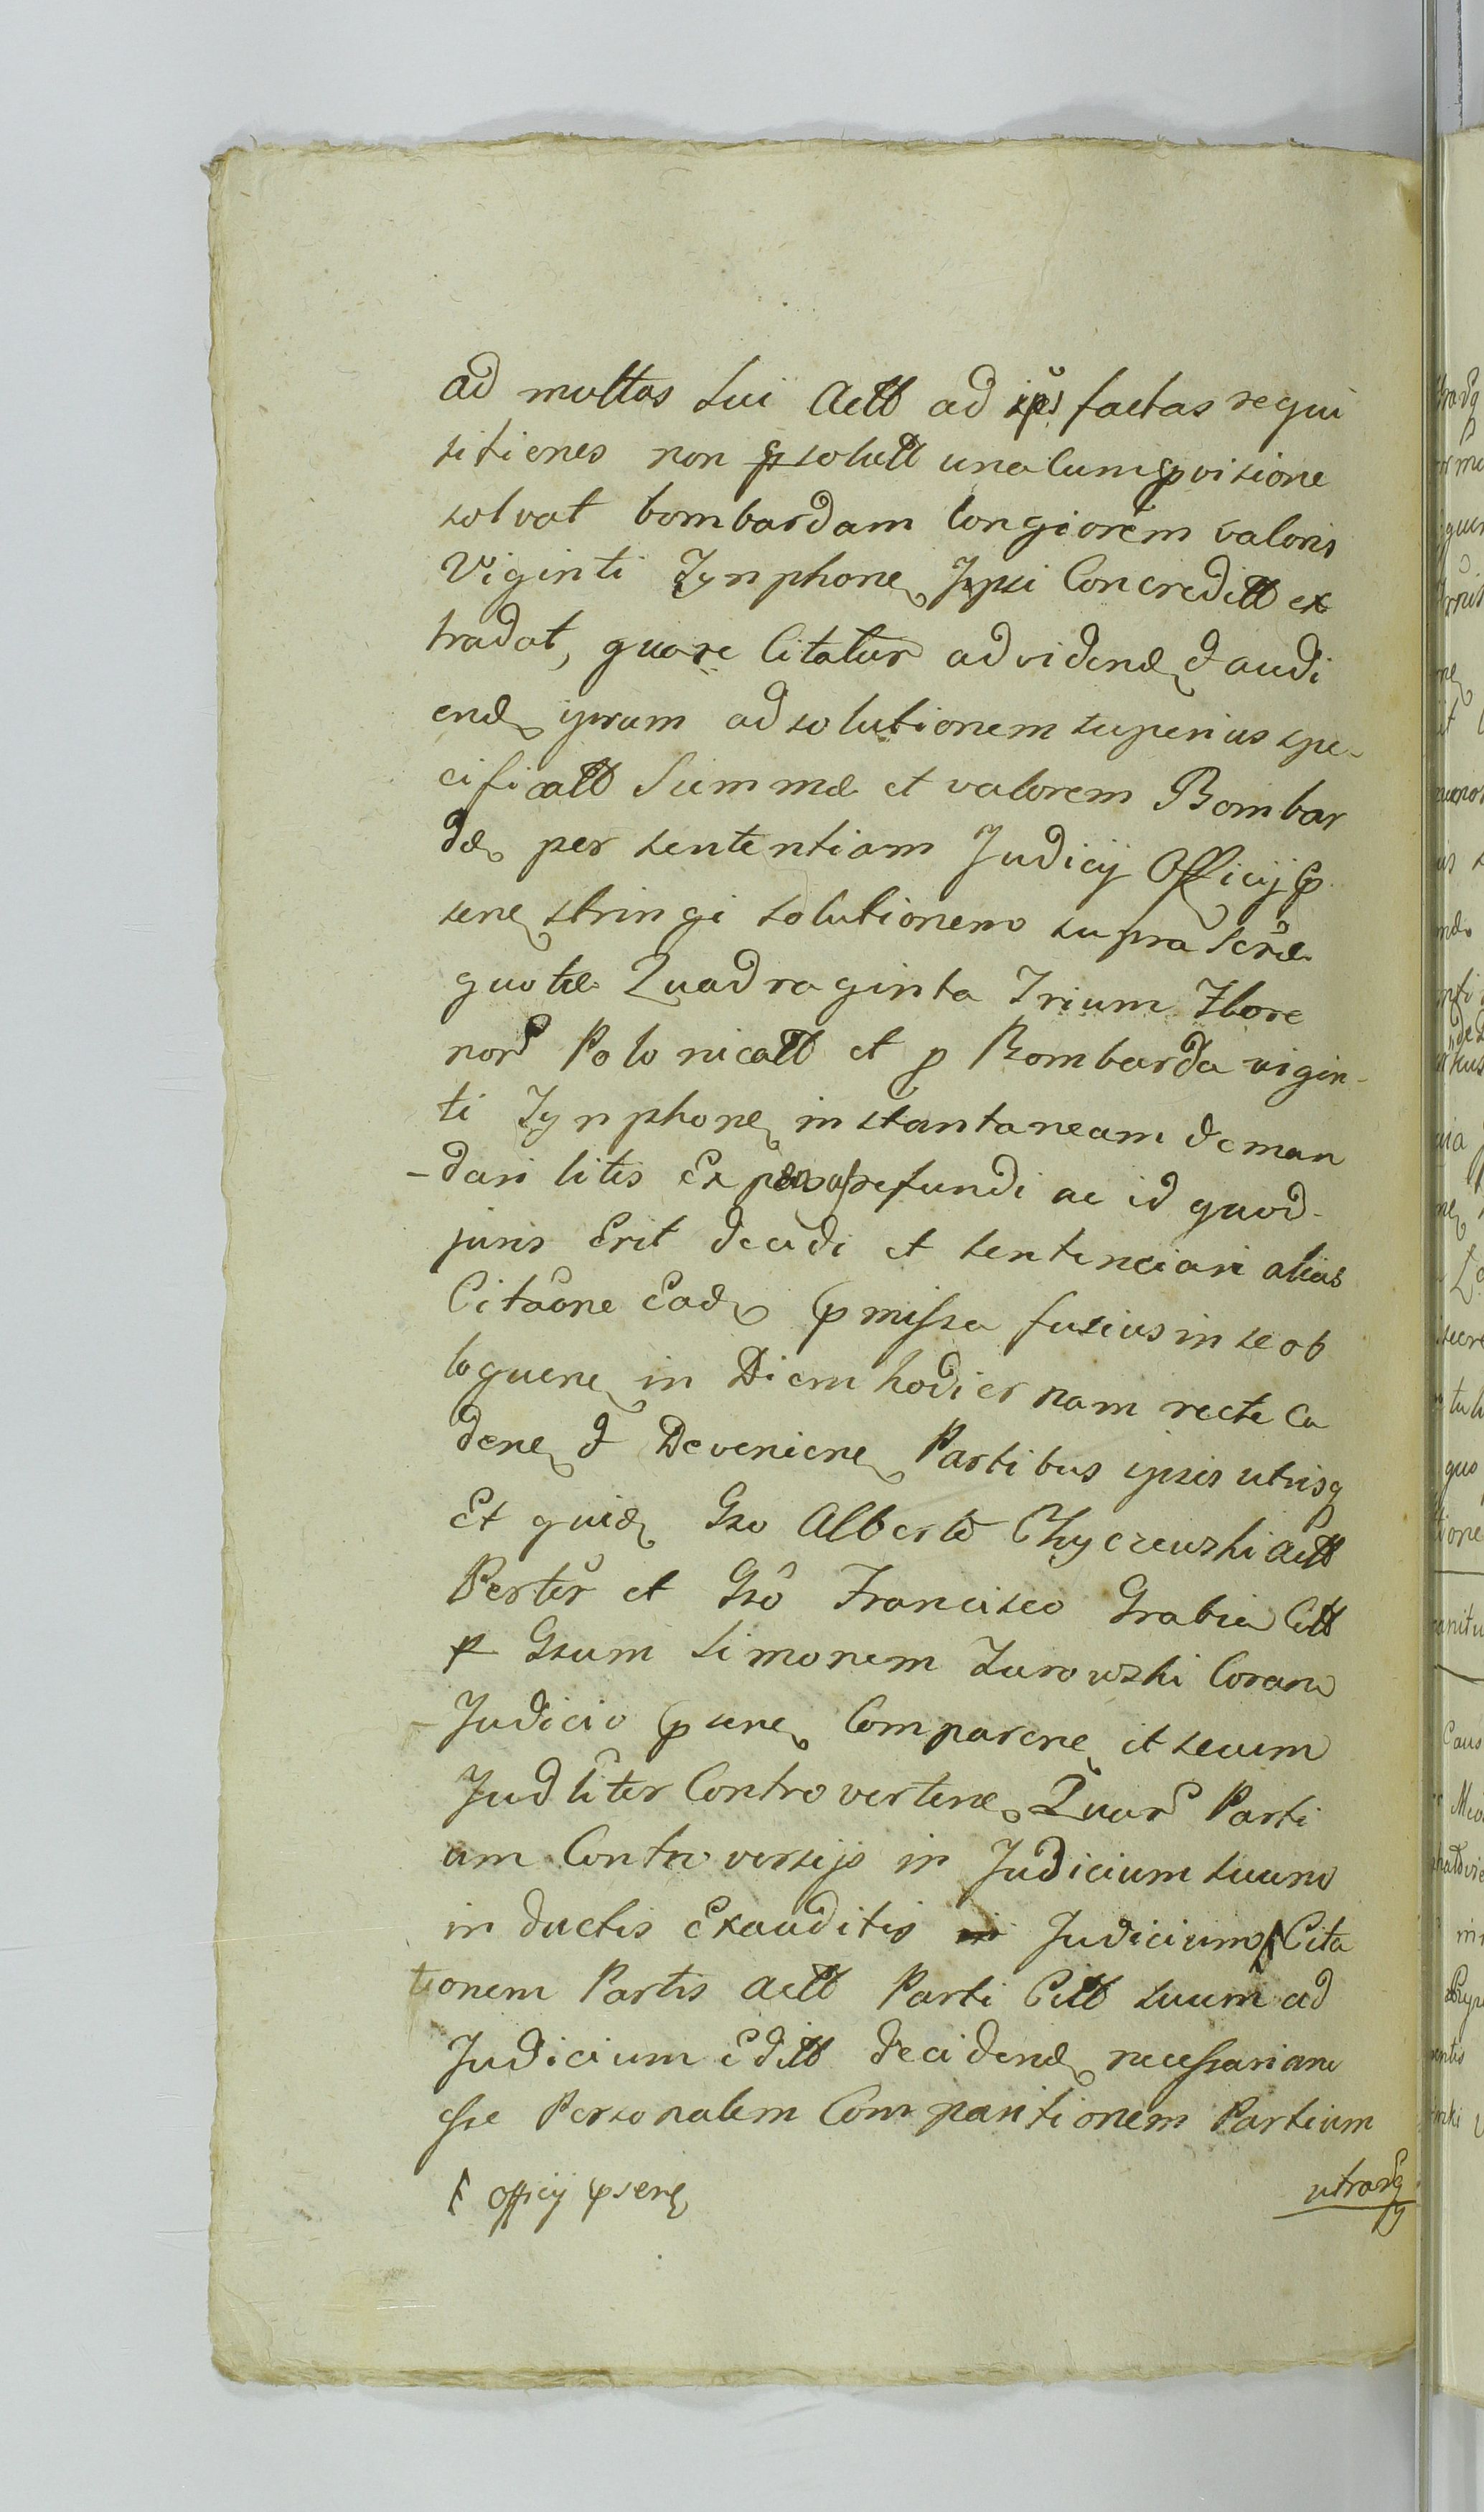 ad multas sui Actt ad ips factas requi
sitiones non psolutt una cum pvisione
solvat bombardam longiorem valoris
Viginti Tynphone Ipsi Concreditt ex
tradat, quare Citatur ad vidend & audi
end ipsum ad solutionem superius spe-
cificatt Summæ et valorem Bombar
dæ per sententiam Judicij Officij p
sene stringi solutionem supra scræ
quotæ Quadraginta Trium Flore
nor Polonicatt et p Bombarda vigin-
ti Tynphone instantaneam deman
-dari litis Expensas refundi ac id quod
juris Erit decidi et sentenciari alias
Citãone Ead pmissa fusius in se ob
loquene in Diem hodiernam recte Ca
dene & Deveniene Partibus ipsis utrisq
Et quid Gso Alberto Chyczewski Actt
Perter et Gso Francisco Grabia Citt
p Gsum Simonem Zurowski Coram
Judicio psene Comparene et secum
Judliter Controvertene Quar Parti
um Controversijs in Judicium suum
inductis Exauditis Judicium Cita
tionem Partis Actt Parti Citt suum ad
Judicium editt decidend necessariam
esse Personalem Comparitionem Partium
officij psene
utrarq